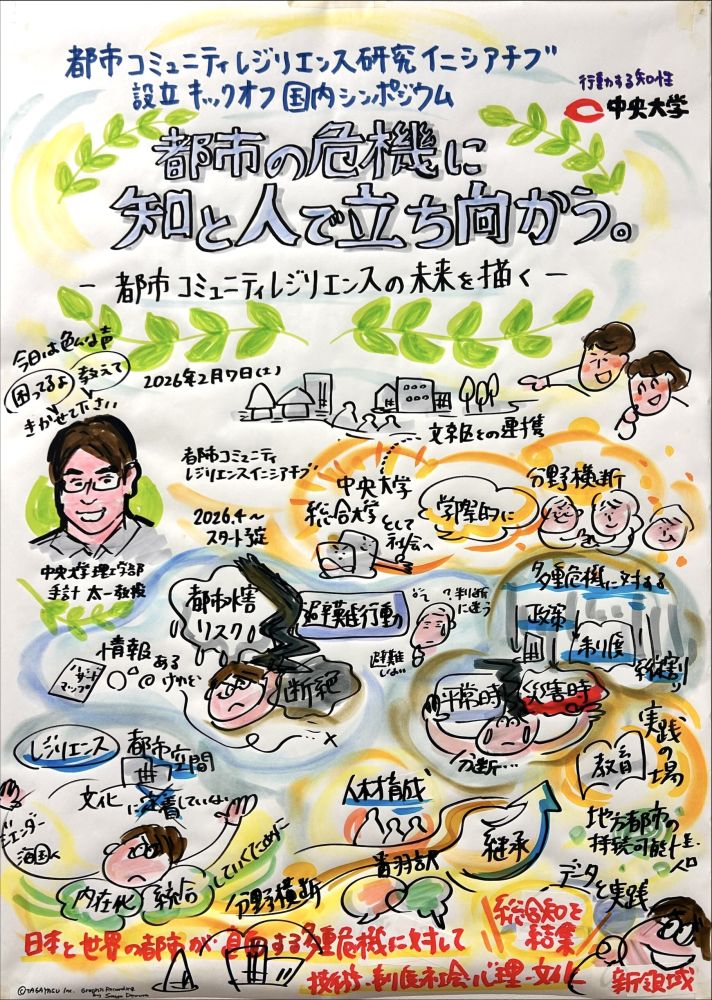 都市コミュニティレジリエンス研究イニシアチブ
設立キックオフ国内シンポジウム
行動する知性
中央大学
都市の危機に
知と人で立ち向かう。
－都市コミュニティレジリエンスの未来を描く－
今日は色んな声
困ってるよ
教えて
きかせて下さい
2026年2月7日(土)
文京区との連携
都市コミュニティ
レジリエンスイニシアチブ
2026.4～
スタート予定
中央大学
総合大学として
社会へ
学際的に
分野横断
中央大学理工学部
手計 太一教授
都市水害
リスク
避難行動
判断
に迷う
多重危機に対する
政策
制度
縦割り
情報
あるけれど
ハザード
マップ
断絶
平常時
災害時
分断…
レジリエンス
都市空間
文化に定着していない
ジェンダー
内在化
統合
していくために
人材育成
分野横断
継承
教育
実践の場
地方都市の
持続可能性
人口
データと実践
総合知を
結集
日本と世界の都市が直面する多重危機に対して
技術・制度・社会・心理・文化
新領域
©TAGAYASU Inc. Graphic Recording